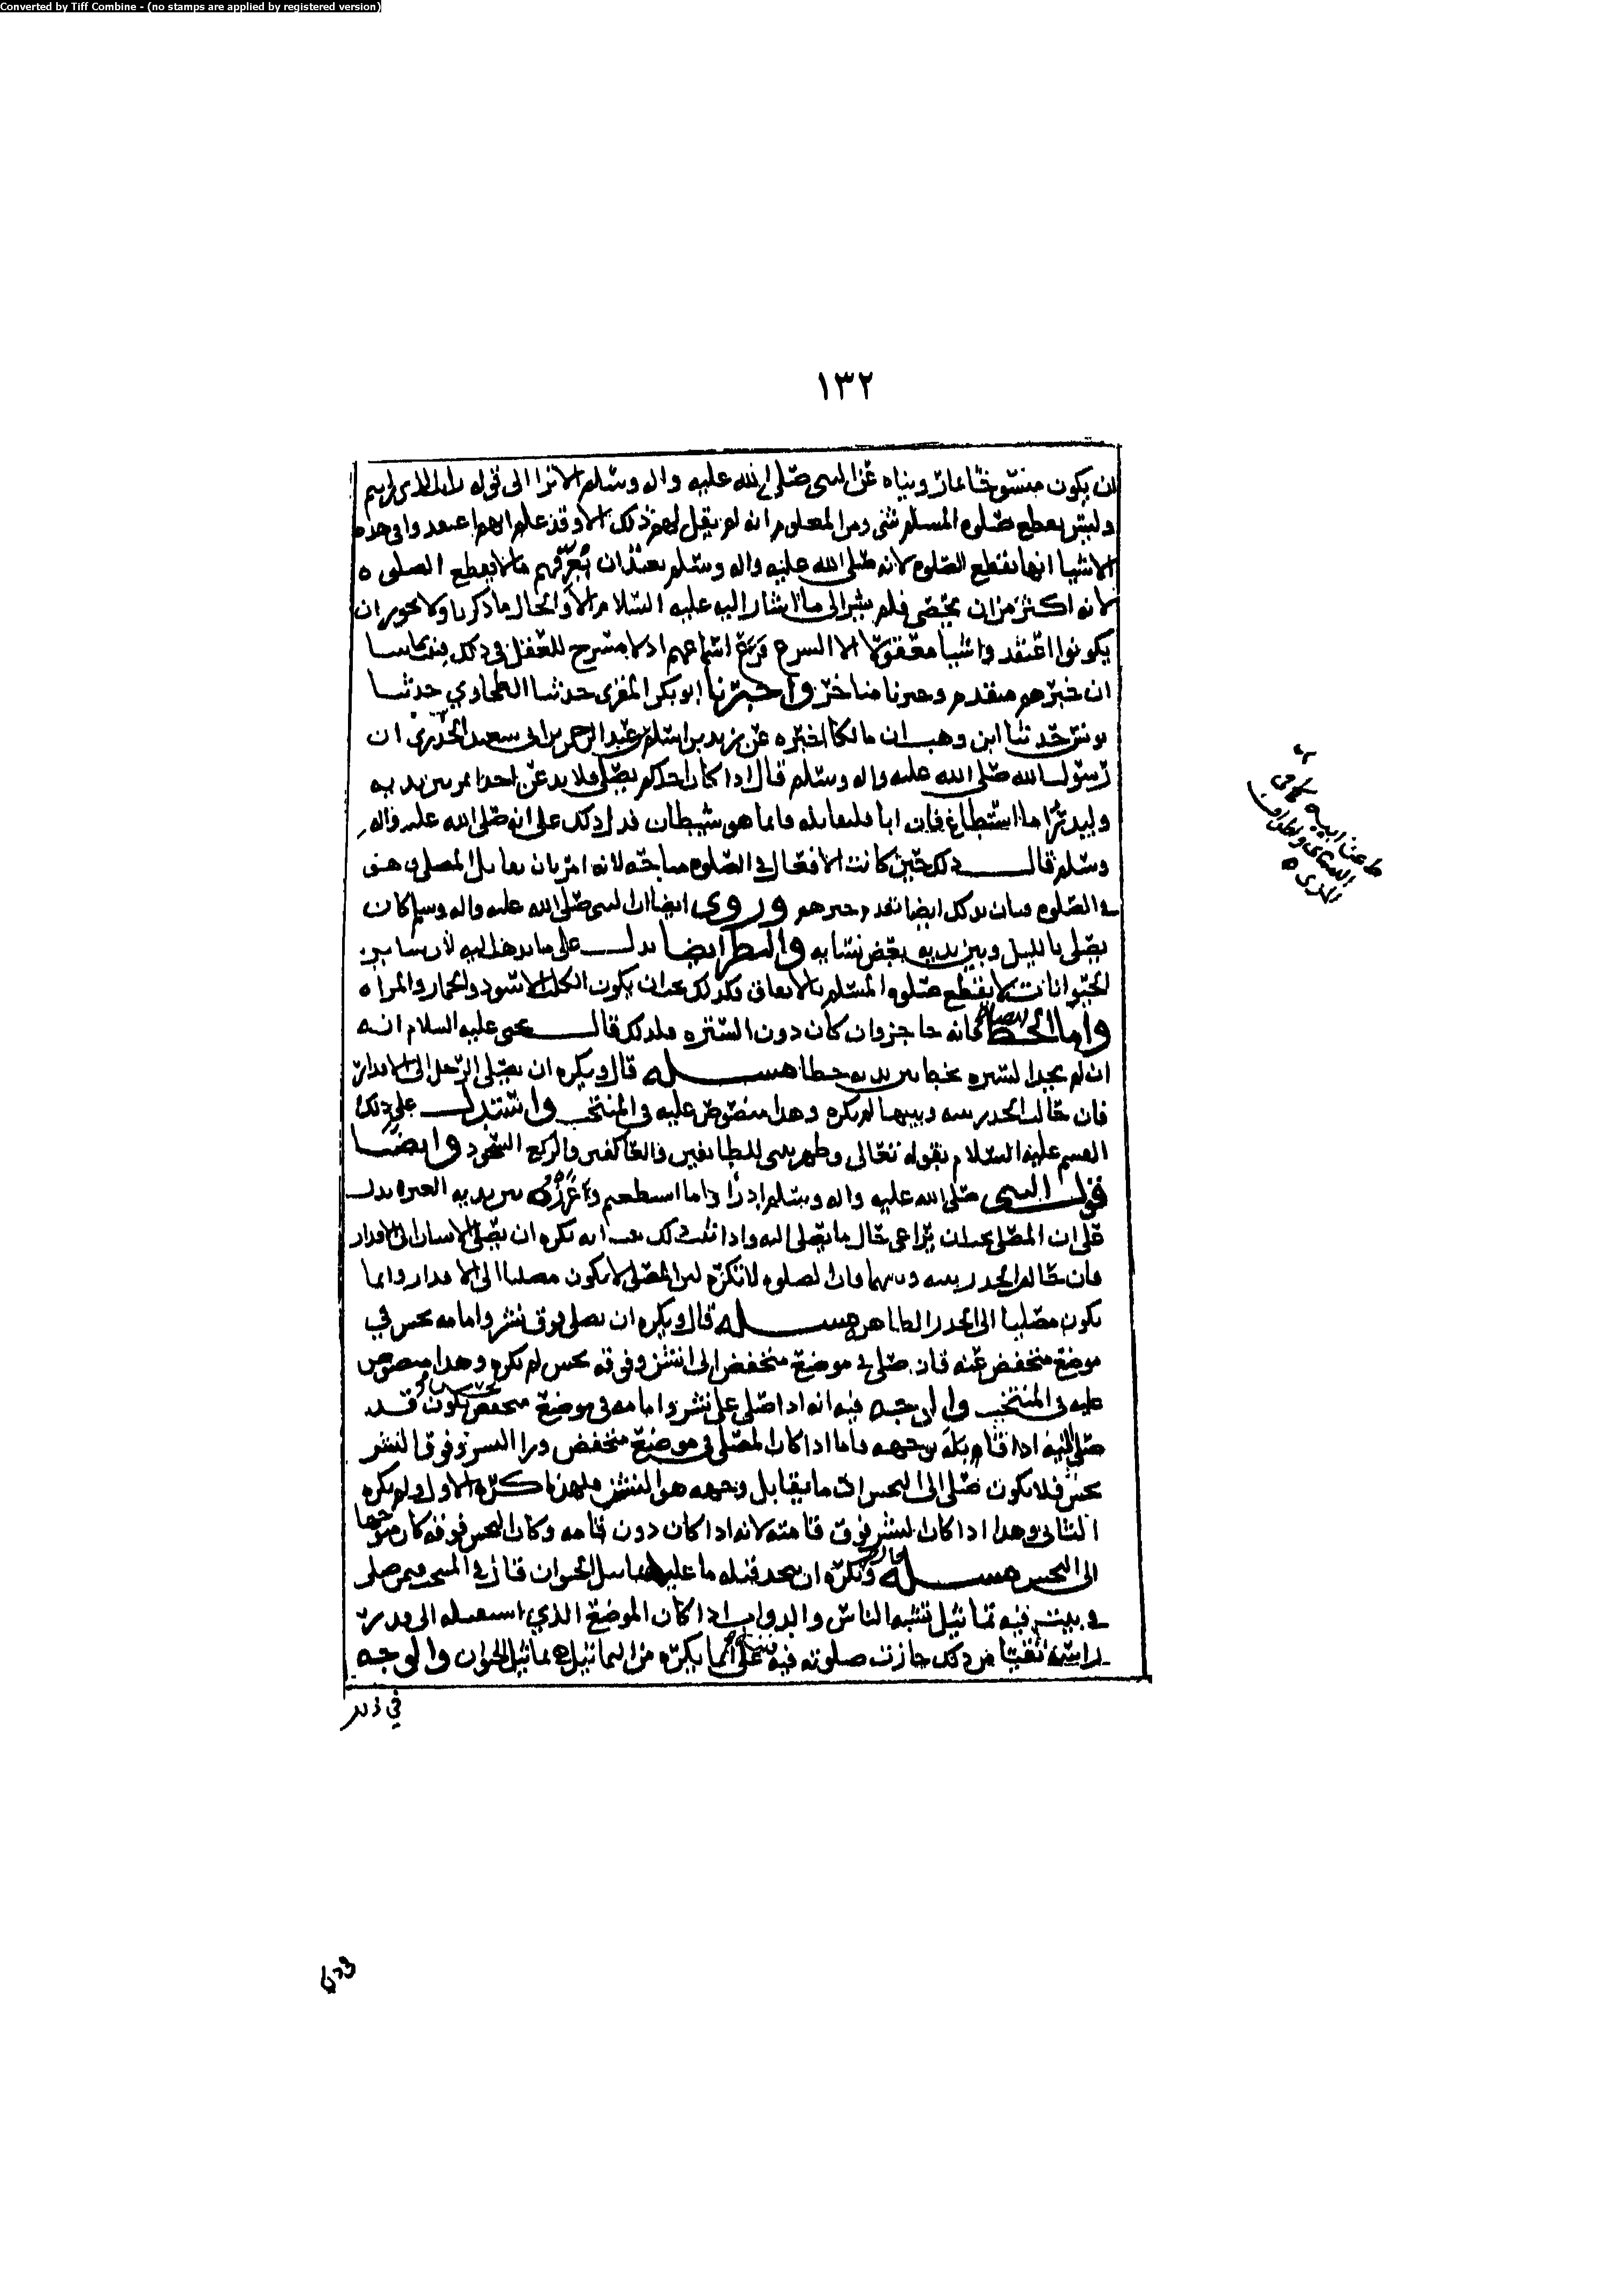 Converted by Tiff Combine - (no stamps are applied by registered version)
١٣٢
ان يكون منسوخا بما رويناه عن النبي صلى الله عليه واله وسلم الا ترا الى قوله
وليس يقطع صلوه المسلم شي ومن المعلوم انه لم يقل لهم ذلك الا وقد علم انهم اعتقدوا في هذه
الاشيا انها تقطع الصلوه لانه صلى الله عليه واله وسلم يعرفهم مالا يقطع الصلوه
لانه اكثر من ان يحصى فلم يشر الى ما اشار اليه عليه السلام الا والحال ما ذكرنا ولا يجوز ان
يكونوا اعتقدوا شيا معقولا الا والشرع قرع اسماعهم اذ لا مسرح للعقل في ذلك
ان خبرهم متقدم وخبرنا متاخر واخبرنا ابو بكر المقري حدثنا الطحاوي حدثنا
يونس حدثنا ابن وهب ان مالكا اخبره عن زيد بن اسلم عن عبد الرحمن بن ابي سعيد الخدري ان
رسول الله صلى الله عليه واله وسلم قال اذا كان احدكم يصلي فلا يدعن احدا يمر بين يديه
وليدرا ما استطاع فان ابا فليقاتله فانما هو شيطان فدل ذلك على انه صلى الله عليه واله
وسلم قال ذلك حين كانت الافعال في الصلوه مباحه لانه امر بان يقاتل المصلي وهو
في الصلوه فبان بذلك ايضا تقدم خبرهم وروي ايضا ان النبي صلى الله عليه واله وسلم كان
يصلي بالليل وبين يديه بعض نسايه والنظر ايضا يدل على ما نذهب اليه لان ساير
الحيوانات لا يقطع صلوه المسلم بالاتفاق فكذلك يجب ان يكون الكلب الاسود والحمار والمراه
واما الخط فانه حاجز وان كان دون الستره فلذلك قال يحيى عليه السلام انه
ان لم يجد الستره يخط بين يديه خطا مسله قال ويكره ان يصلي الرجل الى الاقذار
فان حال الجدر بينه وبينها لم يكره وهذا منصوص عليه في المنتخب واستدل على ذلك
القسم عليه السلام بقوله تعالى وطهر بيتي للطايفين والعاكفين والركع السجود وايضا
قول النبي صلى الله عليه واله وسلم ادراوا ما استطعتم بين يديه العنزه يدل
على ان المصلي يجب ان يراعي حال ما يصلي اليه واذا ثبت ذلك ثبت انه يكره ان يصلي الانسان الى الاقذار
فان حال الجدر بينه وبينها فان الصلوه لا تكره لان المصلي لا يكون مصليا الى الاقذار وانما
يكون مصليا الى الجدر الطاهر مسله قال ويكره ان يصلي فوق نشز وامامه نجس في
موضع منخفض عنه فان صلى في موضع منخفض الى نشز وفوقه نجس لم يكره وهذا منصوص
عليه في المنتخب والوجه فيه انه اذا صلى على نشز وامامه في موضع منخفض نجس يكون قد
صلى اليه اذا قابله بوجهه فاما اذا كان المصلي في موضع منخفض ورا النشز وفوق النشز
نجس فلا يكون صلى الى النجس لان ما يقابل وجهه هو النشز فلهذا كره الاول ولم يكره
الثاني وهذا اذا كان النشز فوق قامته لانه اذا كان دون قامه وكان النجس فوقه كان متوجها
الى النجس مسله قال ويكره ان يسجد قبله ما عليه تماثيل الحيوان قال في المسجد فيمن صلى
في بيت فيه تماثيل تشبه الناس والدواب اذا كان الموضع الذي استقبله الى قدر
راسه نقيا من ذلك جازت صلوته فيه على انما يكره من التماثيل تماثيل الحيوان والوجه
في ذلك